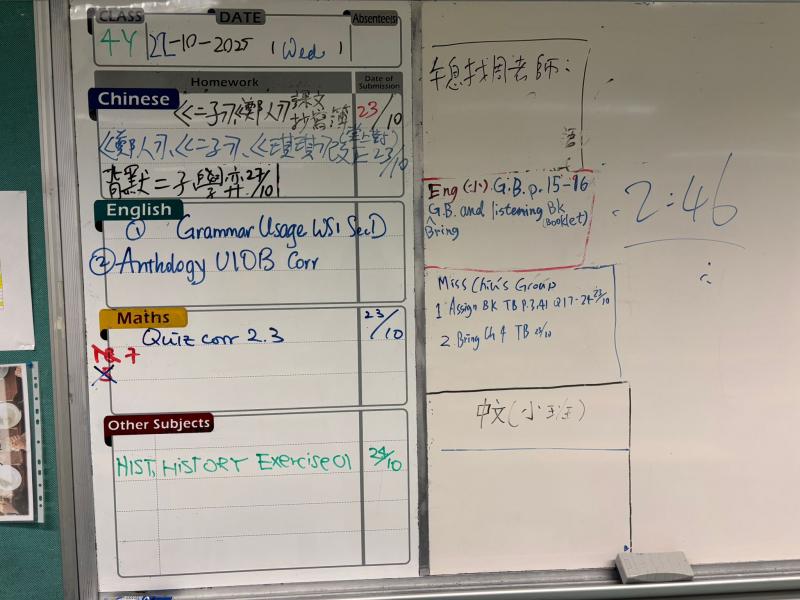 CLASS DATE Absentees
4Y 22-10-2025 (Wed)
Homework Date of Submission
Chinese
《二子》《鄭人》課文抄寫簿 23/10
《鄭人》、《二子》、《
23/10
背默二子學弈 27/10
English
① Grammar Usage WS1 Sec D
② Anthology U10B Corr
Maths
Quiz corr 2.3 23/10
Other Subjects
HIST. HISTORY Exercise 01 24/10
午息找周老師：
Eng (小) G.B. p. 15-16
G.B. and listening Bk (Booklet)
Bring
Miss Chiu's Group
1 Assign BK TB P.3.41 Q17-24 23/10
2 Bring Ch 4 TB 23/10
中文(小班)
2:46